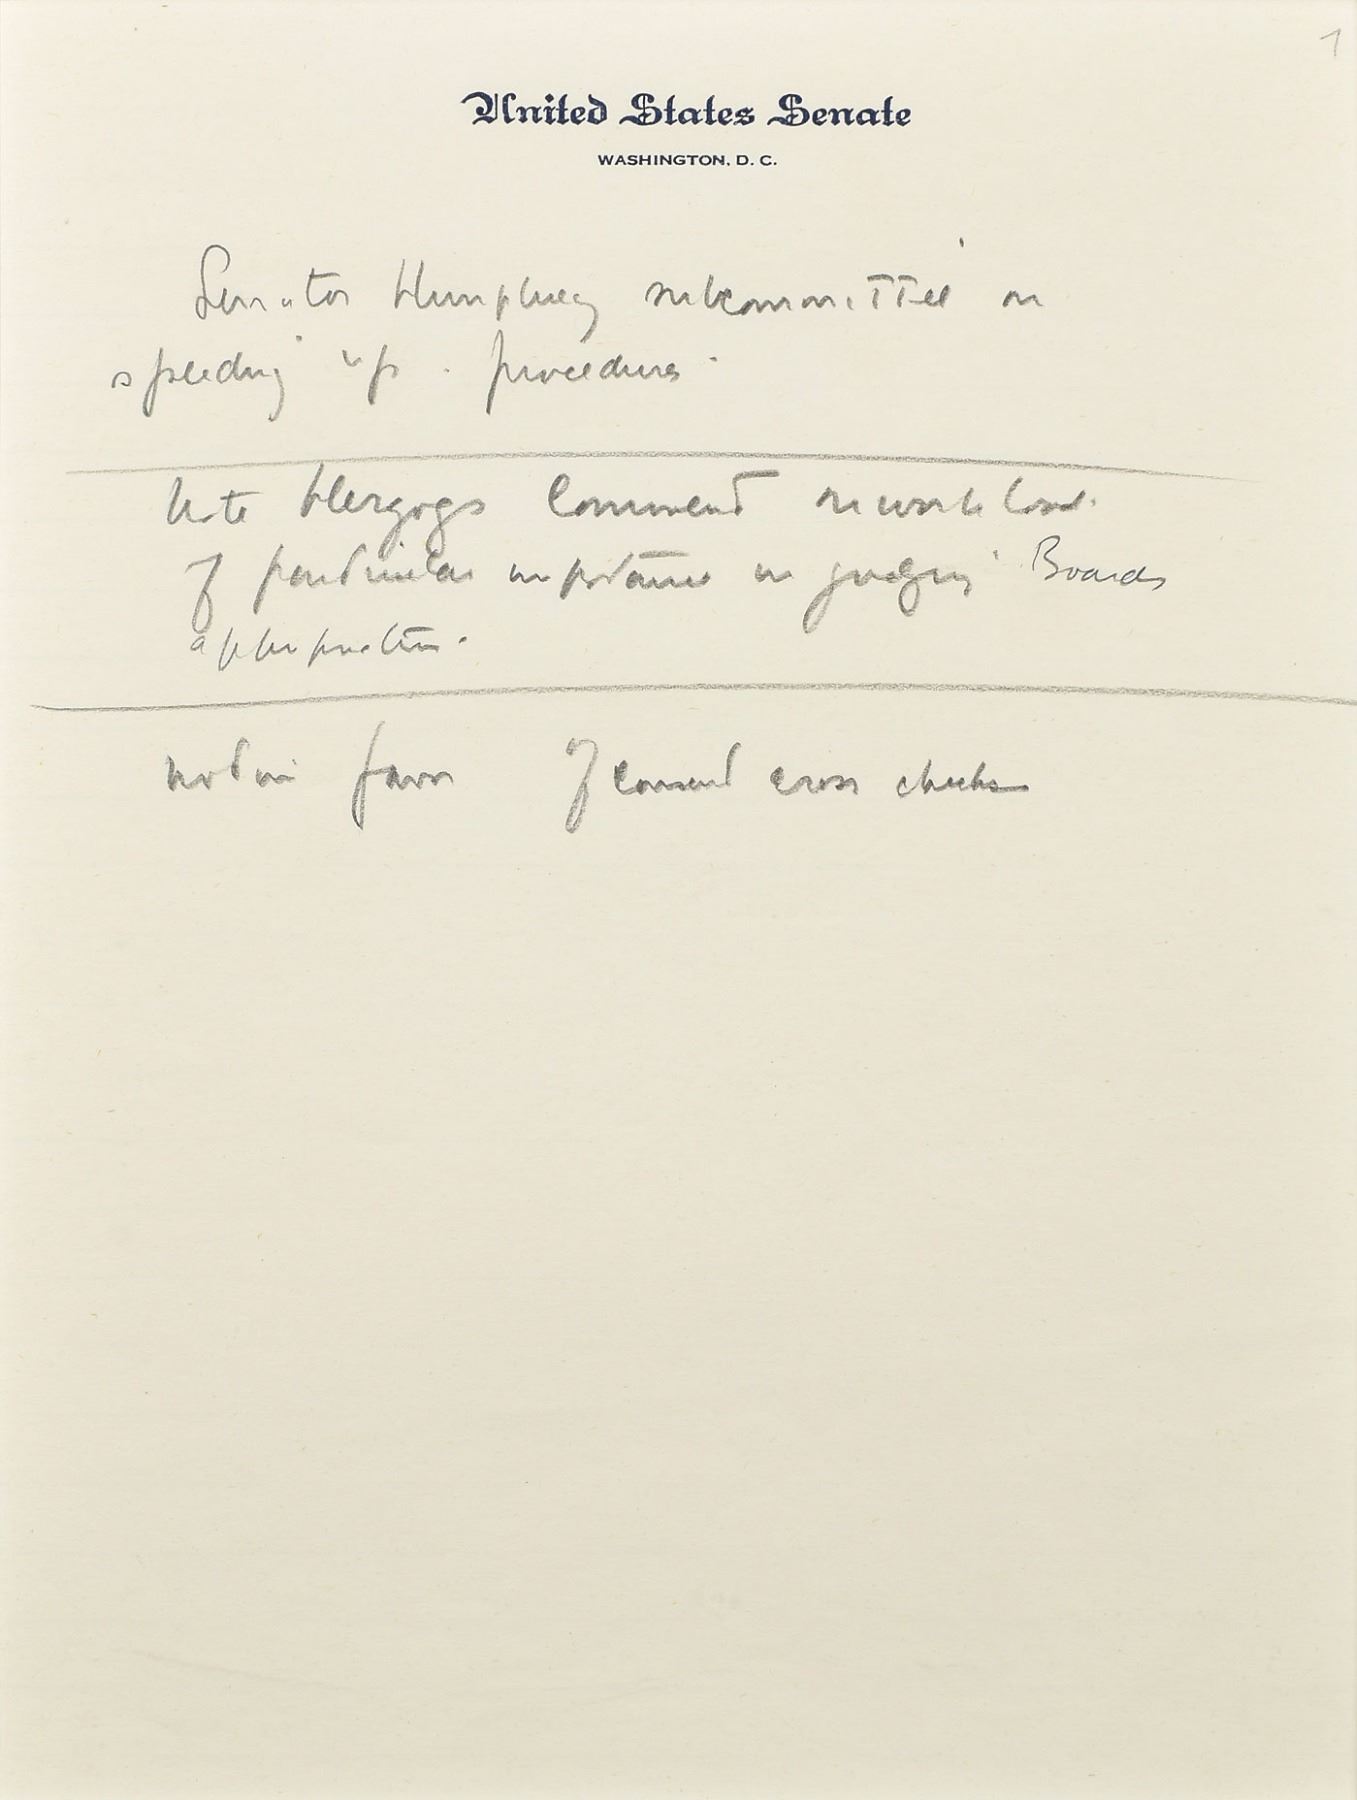 1
United States Senate
WASHINGTON, D. C.
Senator Humphrey subcommittee on
speeding up procedures.
Note Herzogs Comment on work load.
of particular importance in judging Boards
appropriation.
not in favor of consent cross checks